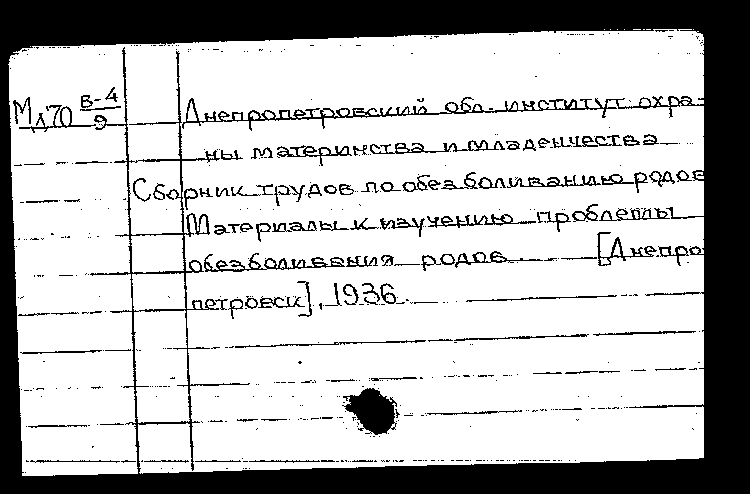 Мд70 В-4/9
Днепропетровский обл. институт охра-
ны материнства и младенчества
Сборник трудов по обезболиванию родов
Материалы к изучению проблемы
обезболивания родов. [Днепро-
петровск], 1936.